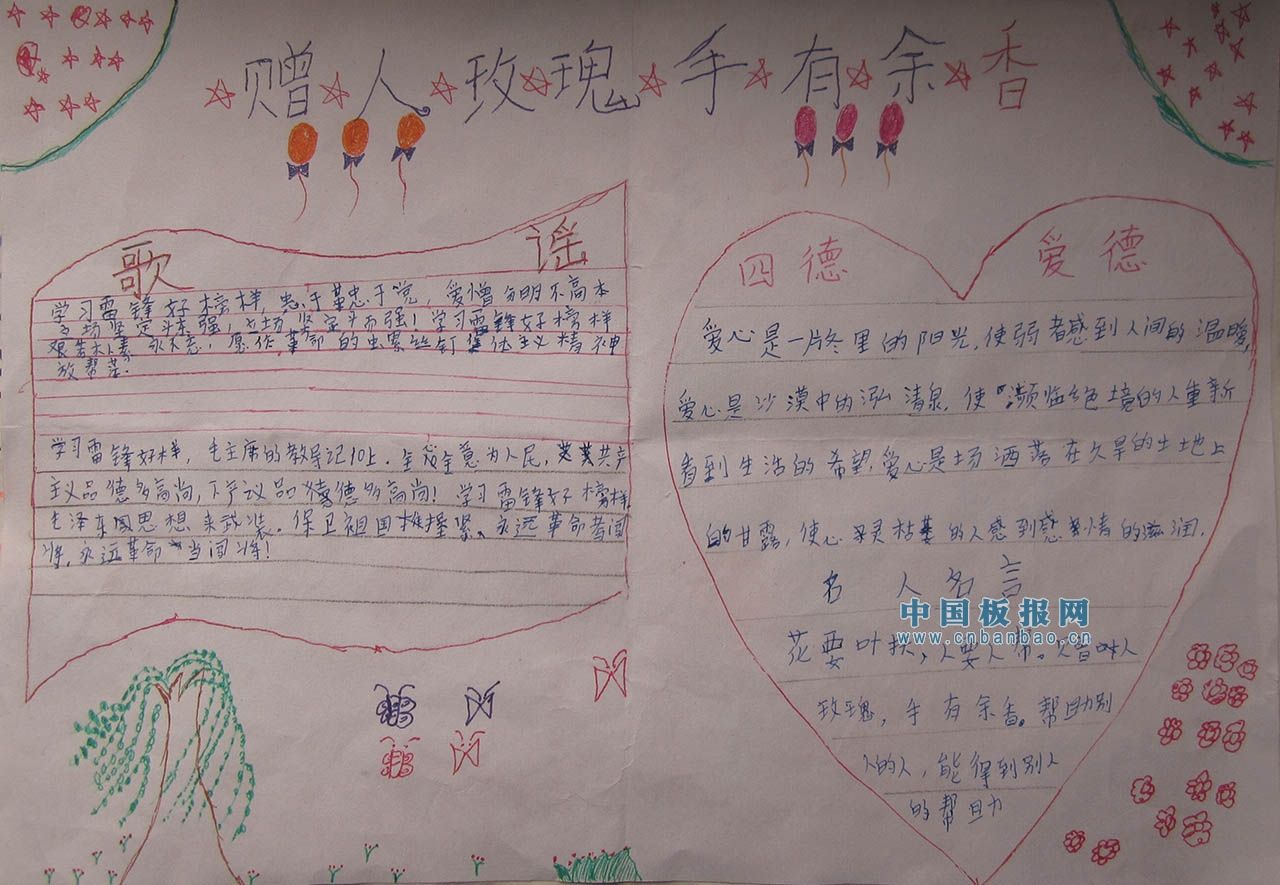 赠人玫瑰手有余香
歌谣
学习雷锋好榜样,忠于革忠于党,爱憎分明不高本
立场坚定斗东强,立场坚定斗而强!学习雷锋好榜样
艰苦朴素永不忘,愿作革命的虫累丝钉集体主义精神
放帮芒.
学习雷锋好样,毛主席的教导记10上.全戈全意为人民,共产
主义品德多高尚,下产议品德多高尚!学习雷锋好榜样
毛泽东思想来武装.保卫祖国握紧、永远革命者闯
将,永远革命当闯将!
四德 爱德
爱心是一片冬里的阳光,使弱者感到人间的温暖,
爱心是沙漠中的泓清泉,使濒临绝境的人重新
看到生活的希望,爱心是场洒落在久旱的土地上
的甘露,使心灵枯萎的人感到感情的滋润.
名人名言
中国板报网
www.cnbanbao.cn
花要叶扶,人要人帮。赠人
玫瑰,手有余香。帮助别
人的人,能得到别人
的帮助